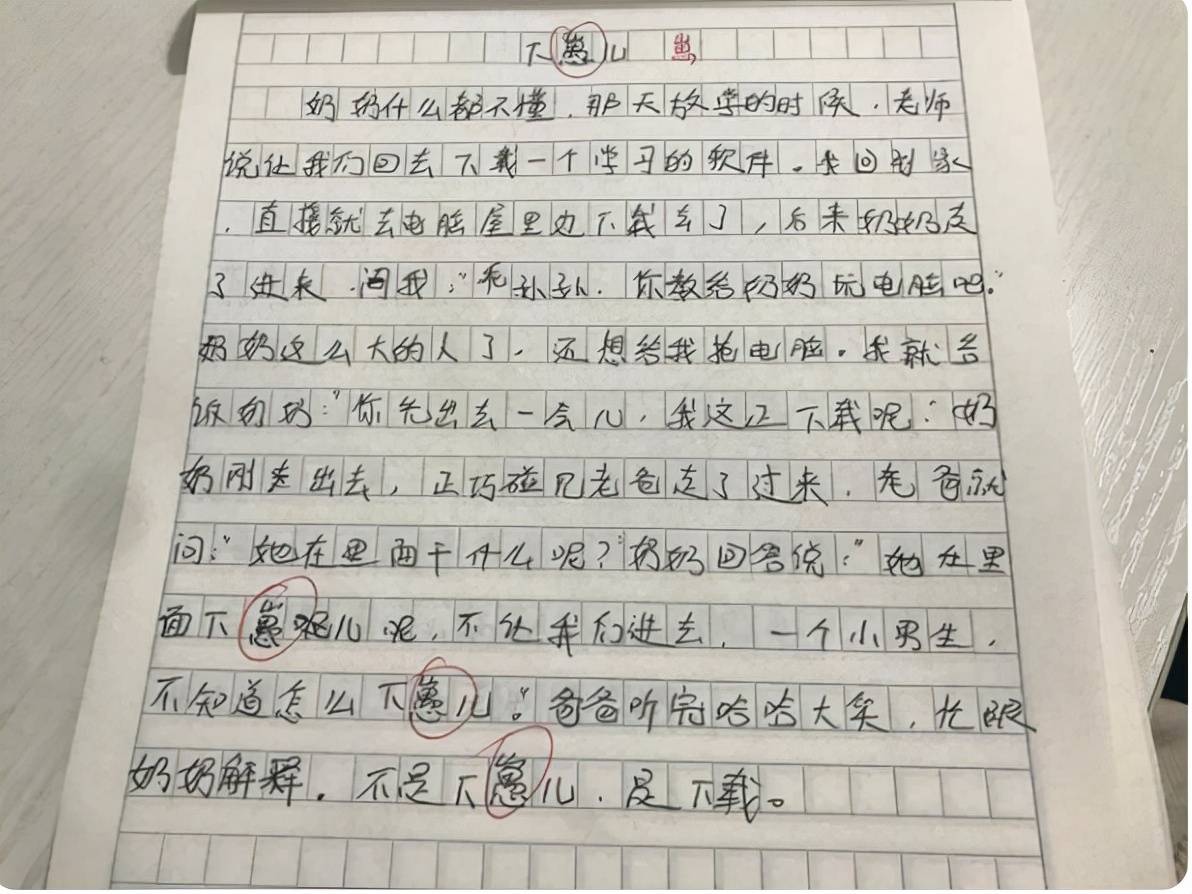 下崽儿 崽
奶奶什么都不懂,那天放学的时候,老师
说让我们回去下载一个学习的软件。我回到家
,直接就去电脑屋里边下载去了,后来奶奶走
了进来,问我:"乖孙孙,你教给奶奶玩电脑吧."
奶奶这么大的人了,还想给我抢电脑。我就告
饭奶奶:"你先出去一会儿,我这正下载呢:"奶
奶刚走出去,正巧碰见老爸走了过来,老爸就
问:"她在里面干什么呢?"奶奶回答说:"她在里
面下崽呢儿呢,不让我们进去,一个小男生,
不知道怎么下崽儿。"爸爸听完哈哈大笑,忙跟
奶奶解释,不是下崽儿,是下载。